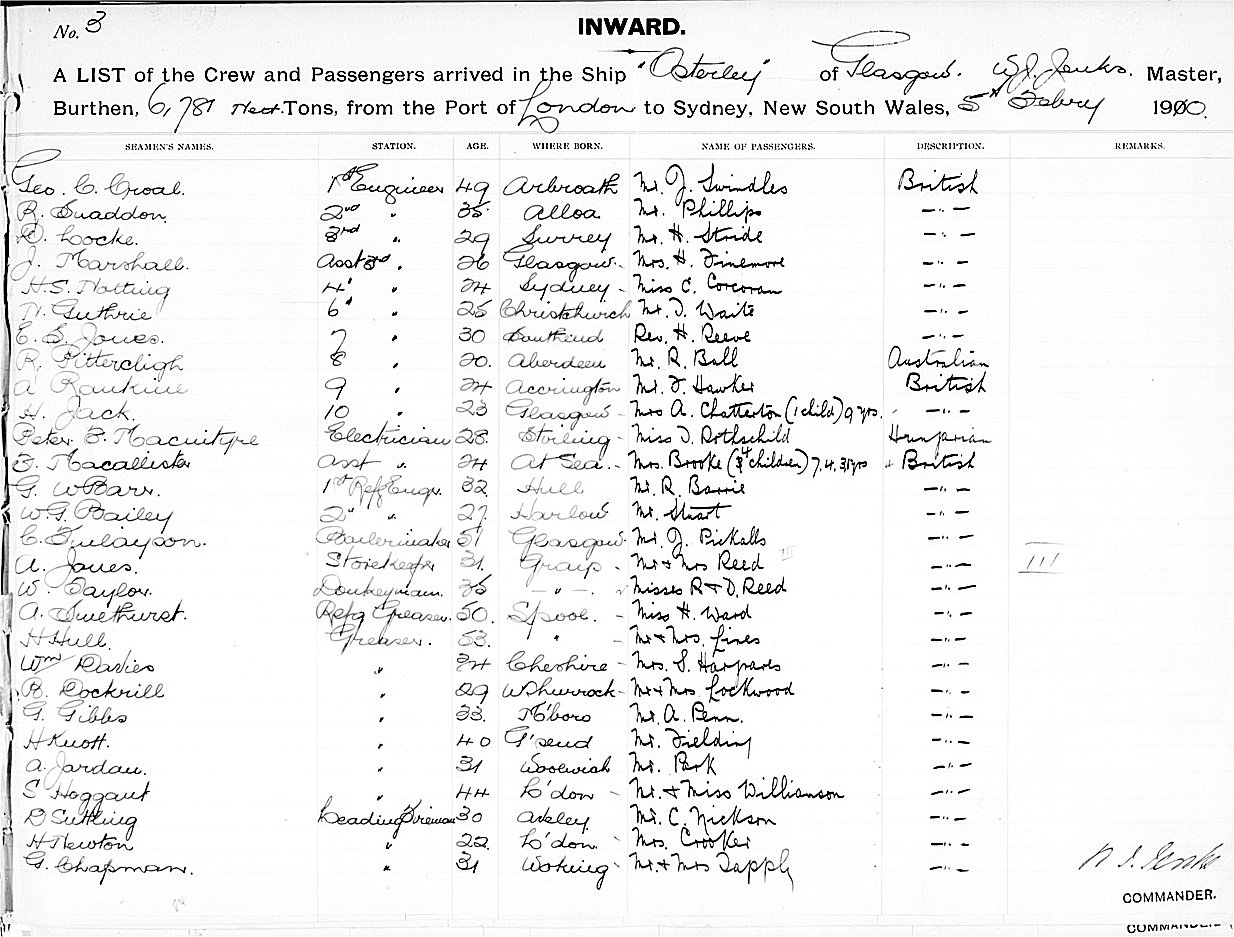 No. 3
INWARD.
A LIST of the Crew and Passengers arrived in the Ship "Osterley" of Glasgow. W.J. Jenks. Master,
Burthen, 6,781 Nett. Tons, from the Port of London to Sydney, New South Wales, 5th Febry 1910.
SEAMEN'S NAMES. STATION. AGE. WHERE BORN. NAME OF PASSENGERS. DESCRIPTION. REMARKS.
Geo. C. Croal. 1st Engineer 49 Arbroath Mr. J. Swindles British
R. Snaddon. 2nd " 35 Alloa Mr. Phillips —"—
D. Locke. 3rd " 29 Surrey Mr. H. Stride —"—
J. Marshall. Asst 3rd " 26 Glasgow. Mrs. H. Finemore —"—
H.S. Notting 4th " 24 Sydney - Miss C. Corcoran —"—
W. Guthrie 6th " 25 Christchurch Mr. T. Waite —"—
E. S. Jones. 7 " 30 Southend Rev. H. Reeve —"—
R. Pittercligh 8 " 20. Aberdeen Mr. R. Ball Australian
A Rankine 9 " 24 Accrington Mr. F. Hawker British
H. Jack. 10 " 23 Glasgow - Mrs A. Chatterton (1 child) 9 yrs. —"—
Peter F. Macintyre Electrician 28. Stirling - Miss D. Rothschild Hungarian
F. Macallister Asst " 24 At Sea. - Mrs. Brooke (4 children) 7. 4. 3 yrs " British
G. W Barr. 1st Refg Engr. 32 Hull Mr. R. Barrie —"—
W.G. Bailey 2nd " 27 Harlow Mr. Stuart —"—
C. Finlayson. Boilermaker 51 Glasgow. Mr. J. Pickalls —"—
A. Jones. Storekeeper 31. Graip - Mr & Mrs Reed III —"— III
W. Taylor. Donkeyman. 35 —"— Misses R & D. Reed —"—
A. Smethurst. Refg Greaser. 50. L'pool. - Miss H. Ward —"—
H Hull. Greaser. 53. " - Mr & Mrs. Lines —"—
Wm Davies " 34 Cheshire - Mrs. S. Hargraves —"—
R. Dockrill " 29 W Thurrock - Mr & Mrs Lockwood —"—
G. Gibbs " 33. M'boro Mr. A. Penn. —"—
H Knott. " 40 G'send Mr. Fielding —"—
A. Jardau. " 31 Woolwich Mr. Park —"—
S Hoggant " 44 Lo'don - Mr. & Miss Williamson —"—
D Sutling Leading Fireman 30 Arkley. Mr. C. Nickson —"—
H Newton " 22. Lo'don - Mrs. Crooker —"—
G. Chapman. " 31 Woking - Mr. & Mrs Tapply —"—
W. J. Jenks
COMMANDER.
COMMANDER.